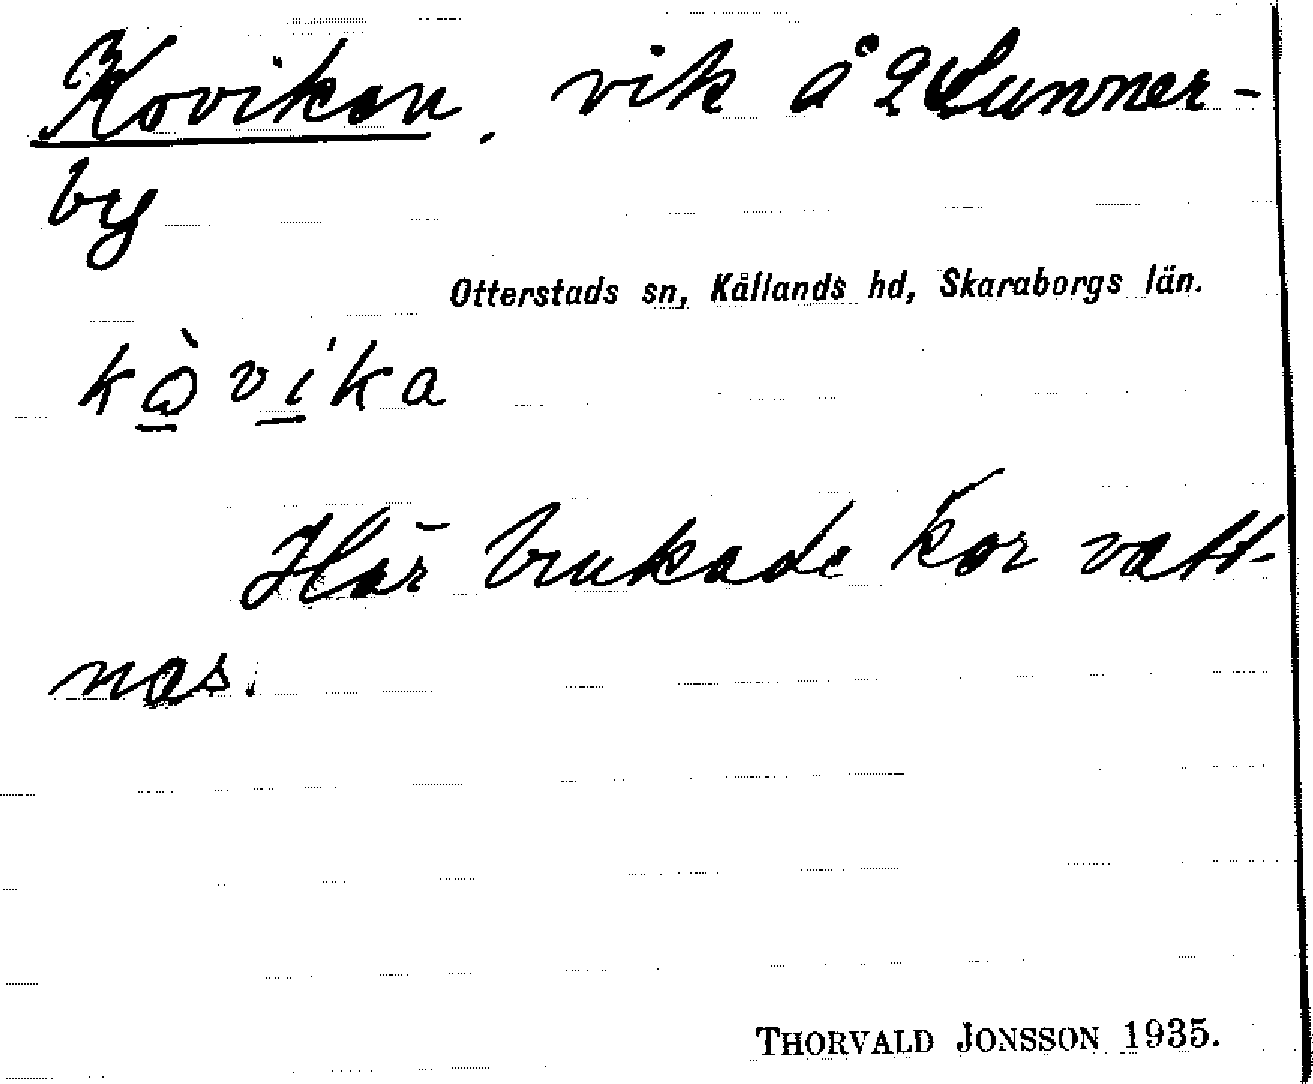 Kovikan, vik å 2 Sunner-
by
Otterstads sn, Kållands hd, Skaraborgs län.
kòvíka
Här brukade kor vatt-
nas.
THORVALD JONSSON 1935.